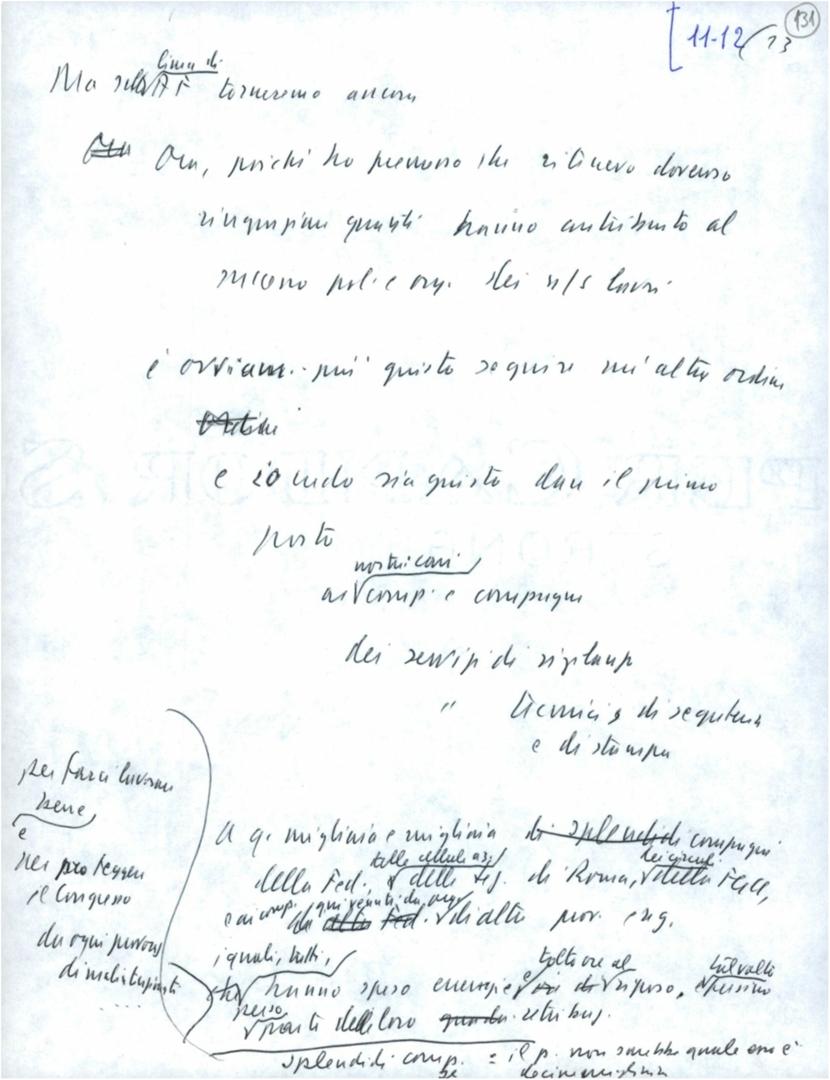 131
[ 11-12/73
linea di
Ma torneremo ancora
Ora Ora, poiché ho premesso che ritenevo doveroso
ringraziare quanti hanno contribuito al
successo pol. e org. dei n/s lavori
è ovviam. più giusto seguire un'altro ordine
e io credo sia giusto dare il primo
posto
nostri cari
ai comp. e compagne
dei servizi di vigilanza
" tecnici, di segreteria
e di stampa
per farci lavorare
bene
e
per proteggere
il Congresso
da ogni
di malintenzionati
....
A q. migliaia e migliaia di splendidi compagni
delle cellule az. dei circoli
della Fed., delle sez. di Roma, della FGCI,
e ai comp. qui venuti da
di altre Fed. di altre prov. e reg.
i quali, tutti,
tolte ore al talvolta
hanno speso energie riposo, e spesso
perso
parti del loro retribuz.
splendidi comp. = il p. non sarebbe quale esso è
se decine migliaia